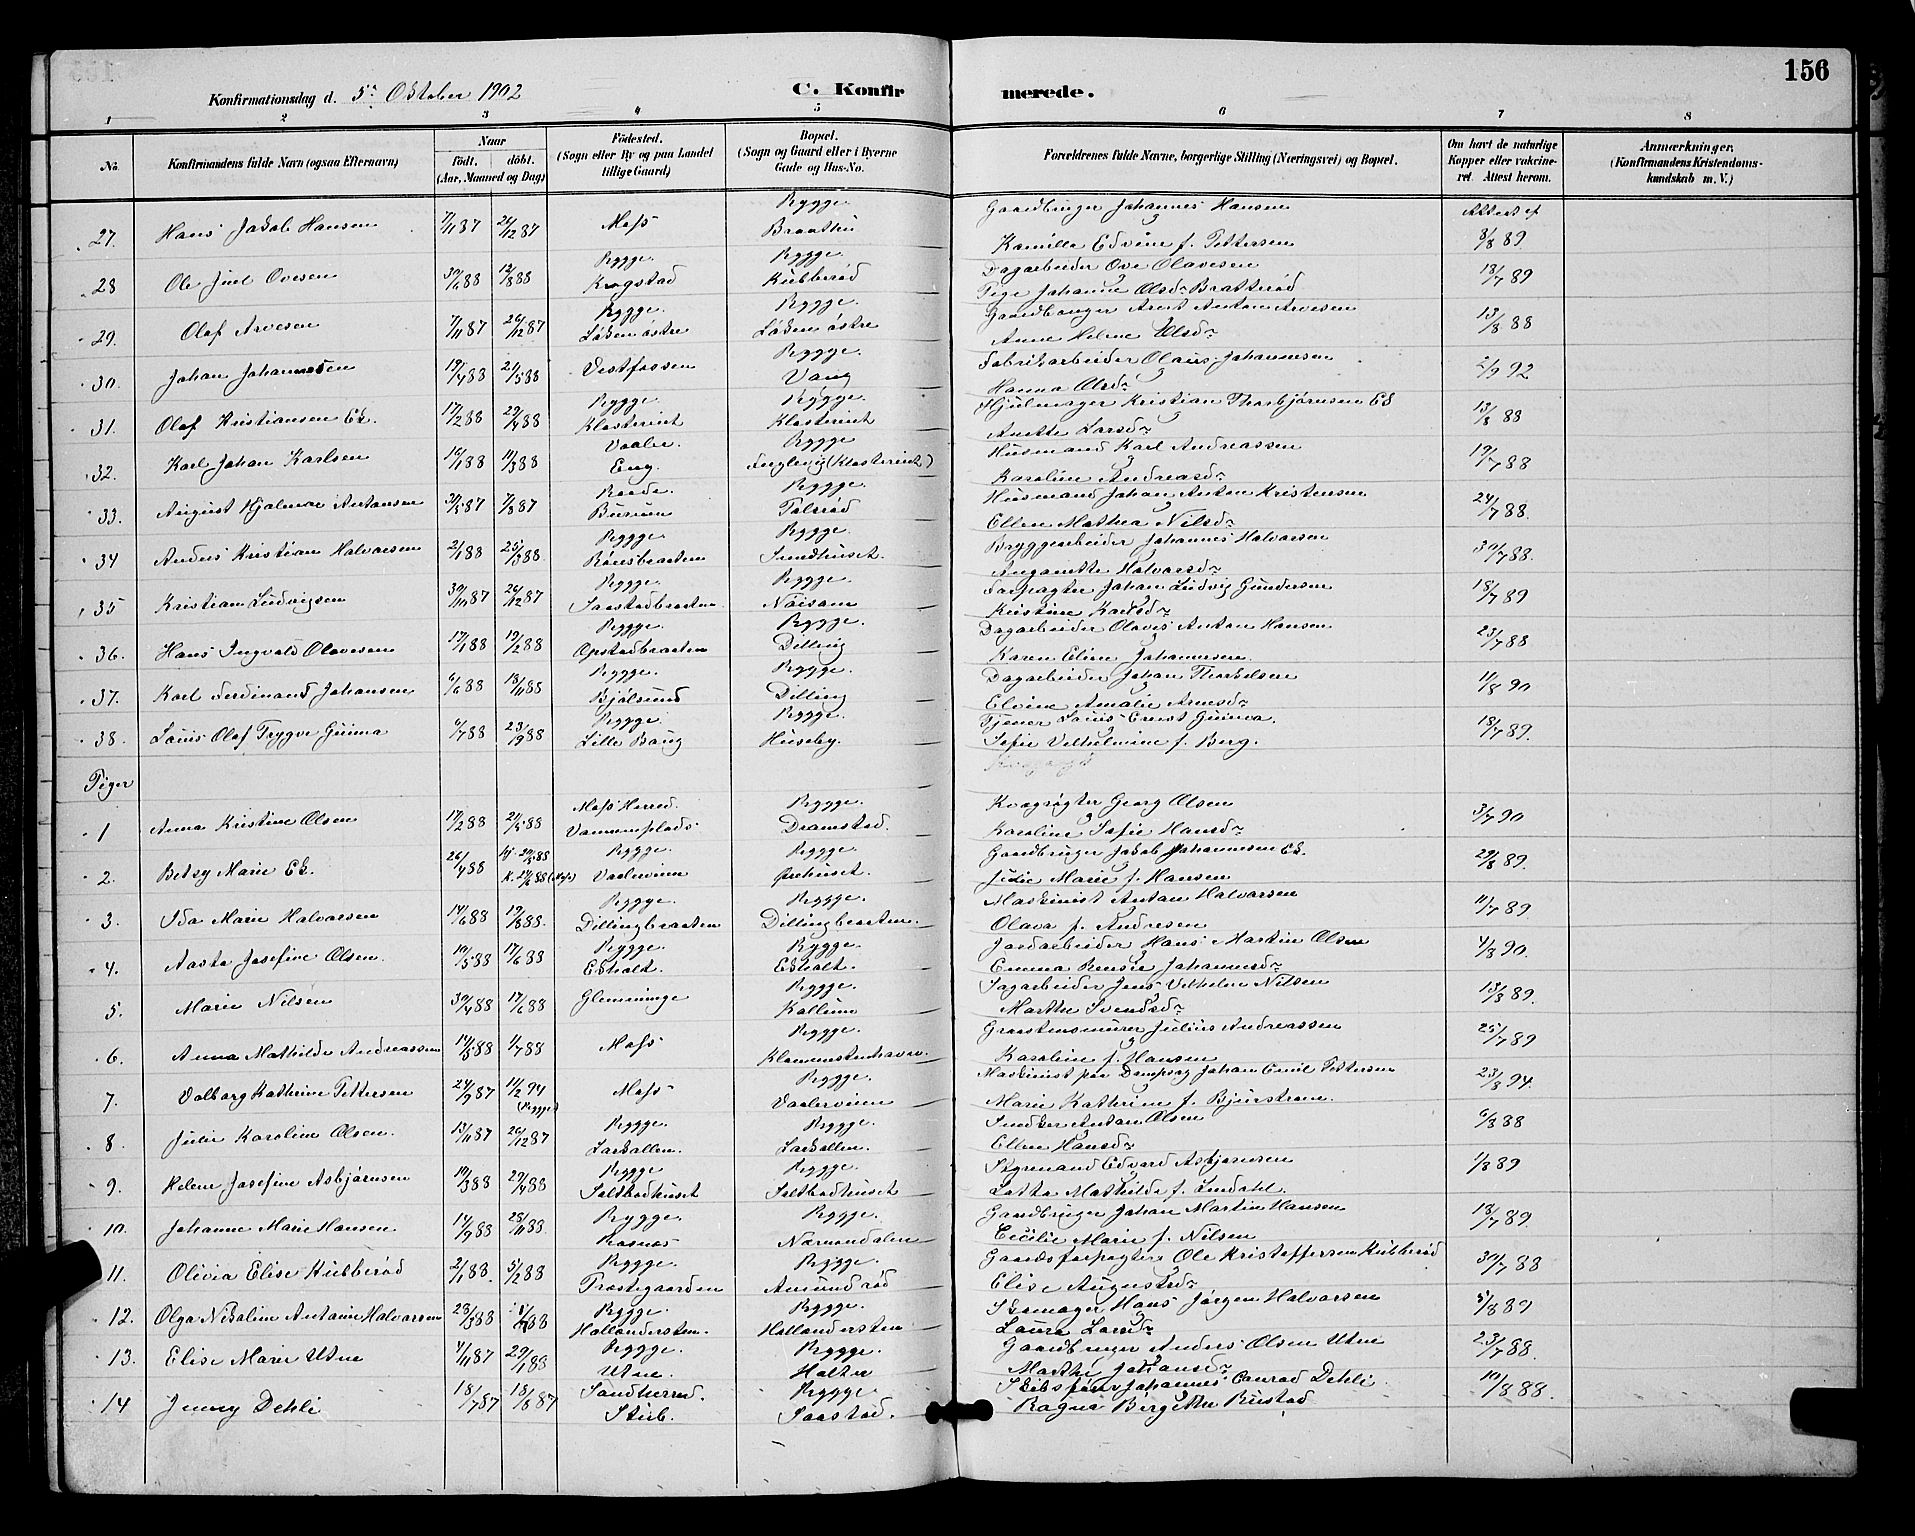 156
Konfirmationsdag d. 5te Oktober 1902 C. Konfirmerede.
1 2 3 4 5 6 7 8
No. Konfirmandens fulde Navn (ogsaa Efternavn) Naar født. døbt. (Aar, Maaned og Dag) Fødested. (Sogn eller By og paa Landet tillige Gaard) Bopæl. (Sogn og Gaard eller i Byerne Gade og Hus-No. Forældrenes fulde Navne, borgerlige Stilling (Næringsvei) og Bopæl. Om havt de naturlige Kopper eller vakcineret. Attest herom. Anmærkninger. (Konfirmandens Kristendomskundskab m. V.)
27. Hans Jakob Hansen 7/11 87 26/12 87 Moss Rygge. Braathen Gaardbruger Johannes Hansen Attest af
Kamilla Edvine f. Pettersen 8/8 89
28 Ole Juel Ovesen 30/6 88 12/8 88 Rygge. Krogstad Rygge. Kubberød Dagarbeider Ove Olavesen
Pige Johanne Olsdr Bratterød 18/7 89
29. Olaf Arvesen 7/11 87 26/12 87 Rygge. Løken østre Rygge. Løken østre Gaardbruger Arent Anton Arvesen
Anne Helene Olsdr 13/8 88
30. Johan Johannesen 19/4 88 21/5 88 Vestfossen Rygge. Vang Fabrikarbeider Olaus Johannesen
Hanna Olsdr 2/9 92
31. Olaf Kristiansen Ek. 17/2 88 29/4 88 Rygge. Klosteriet Rygge. Klosteriet Hjulmager Kristian Thorbjørnsen Ek
Anette Larsdr 13/8 88
32. Karl Johan Karlsen 16/1 88 11/3 88 Vaaler. Eng. Rygge. Fuglevig (Klosteriet) Husmand Karl Andreassen
Karoline Andreasdr 19/7 88
33. August Hjalmar Antonsen 30/5 87 7/8 87 Raade. Burum Rygge. Telsrød Husmand Johan Anton Kristensen
Ellen Mathea Nilsdr 24/7 88.
34 Anders Kristian Halvorsen 2/1 88 25/3 88 Rygge. Røiesbraaten Rygge. Sundhuset. Bryggearbeider Johannes Halvorsen
Anganette Halvorsdr 30/7 88
35 Kristian Ludvigsen 30/11 87 26/12 87 Rygge. Saastadbraaten Rygge. Nøisom Forpagter Johan Ludvig Gundersen
Kristine Karlsdr 18/7 89
36. Hans Ingvald Olavesen 17/1 88 19/2 88 Rygge. Opstadbraaten Rygge. Dilling Dagarbeider Olaves Anton Hansen
Karen Eline Johannesen. 23/7 88
37. Karl Ferdinand Johansen 6/6 88 18/11 88 Rygge. Bjølsund Rygge. Dilling Dagarbeider Johan Thorkelsen
Elvine Amalie Arnesdr 11/8 90
38. Louis Olaf Trygve Guima 6/7 88 23/9 88 Rygge. Lille Baug Rygge. Huseby. Tjener Louis Ernst Guima.
Sofie Vilhelmine f. Berg. 18/7 89.
Piger
1 Anna Kristine Olsen 17/2 88 21/5 88 Moss Herred. Vammenplads Rygge. Dramstad. Kvægrøgter Georg Olsen
Karoline Sofie Hansdr 3/7 90
2. Betsy Marie Ek. 26/4 88 Hj. 29/4 88 K. 24/6 88 (Moss) Rygge. Vaalerveien Rygge. Prehuset. Gaardbruger Jakob Johannesen Ek.
Julie Marie f. Hansen 29/8 89.
3. Ida Marie Halvorsen 14/6 88 19/8 88. Rygge. Dillingbraaten Rygge. Dillingbraaten. Maskinist Anton Halvorsen
Olava f. Andresen 11/7 89.
4. Aasta Josefine Olsen. 10/5 88 17/6 88 Rygge. Ekholt. Rygge. Ekholt. Jordarbeider Hans Martin Olsen
Emma Rensie Johannesdr 4/8 90.
5. Marie Nilsen 30/4 88 17/6 88 Glemminge Rygge. Kallum Sagarbeider Jens Vilhelm Nilsen
Marthe Svendsdr 13/8 89.
6. Anna Mathilde Andreassen 14/5 88 1/7 88 Moss Rygge. Klommestenhaven. Graastensmurer Julius Andreassen
Karoline f. Hansen 25/7 89
7. Valborg Kathrine Pettersen 24/9 87 11/2 94 (Rygge) Moss Rygge. Vaalerveien Maskinist paa Dampsag Johan Emil Pettersen
Marie Kathrine f. Bjurstrøm. 23/8 94.
8. Julie Karoline Olsen. 13/11 87 26/12 87 Rygge. Larkollen. Rygge. Larkollen. Snedker Anton Olsen
Ellen Hansdr 6/8 88
9. Helene Josefine Asbjørnsen 10/3 88 29/4 88 Rygge Saltbodhuset Rygge. Saltbodhuset Styrmand Edvard Asbjørnsen
Lotta Mathilde f. Lindahl. 1/8 89
10. Johanne Marie Hansen 14/9 88 28/11 88 Rygge. Rosnæs Rygge. Normandalen Gaardbruger Johan Martin Hansen
Cecilie Marie f. Nilsen 18/7 89.
11. Olivia Elise Kubberød 2/1 88. 5/2 88 Rygge. Præstegaarden Rygge. Amundrød Gaardsforpagter Ole Kristoffersen Kubberød
Elise Augustsdr 30/7 88
12. Olga Nikoline Antonie Halvorsen 23/3 88 88 Rygge. Hollendersten. Rygge. Hollendersten Skomager Hans Jørgen Halvorsen
Laura Larsdr 5/8 89
13. Elise Marie Utne 4/11 87 29/1 88 Rygge. Utne. Rygge. Holten Gaardbruger Anders Olsen Utne
Marthe Johansdr 23/7 88.
14 Jenny Dehli 18/7 87 18/8 87 Sandherred. Stub. Rygge. Saastad. Skibsfører Johannes Conrad Dehli
Ragna Birgitte Rustad 10/8 88.